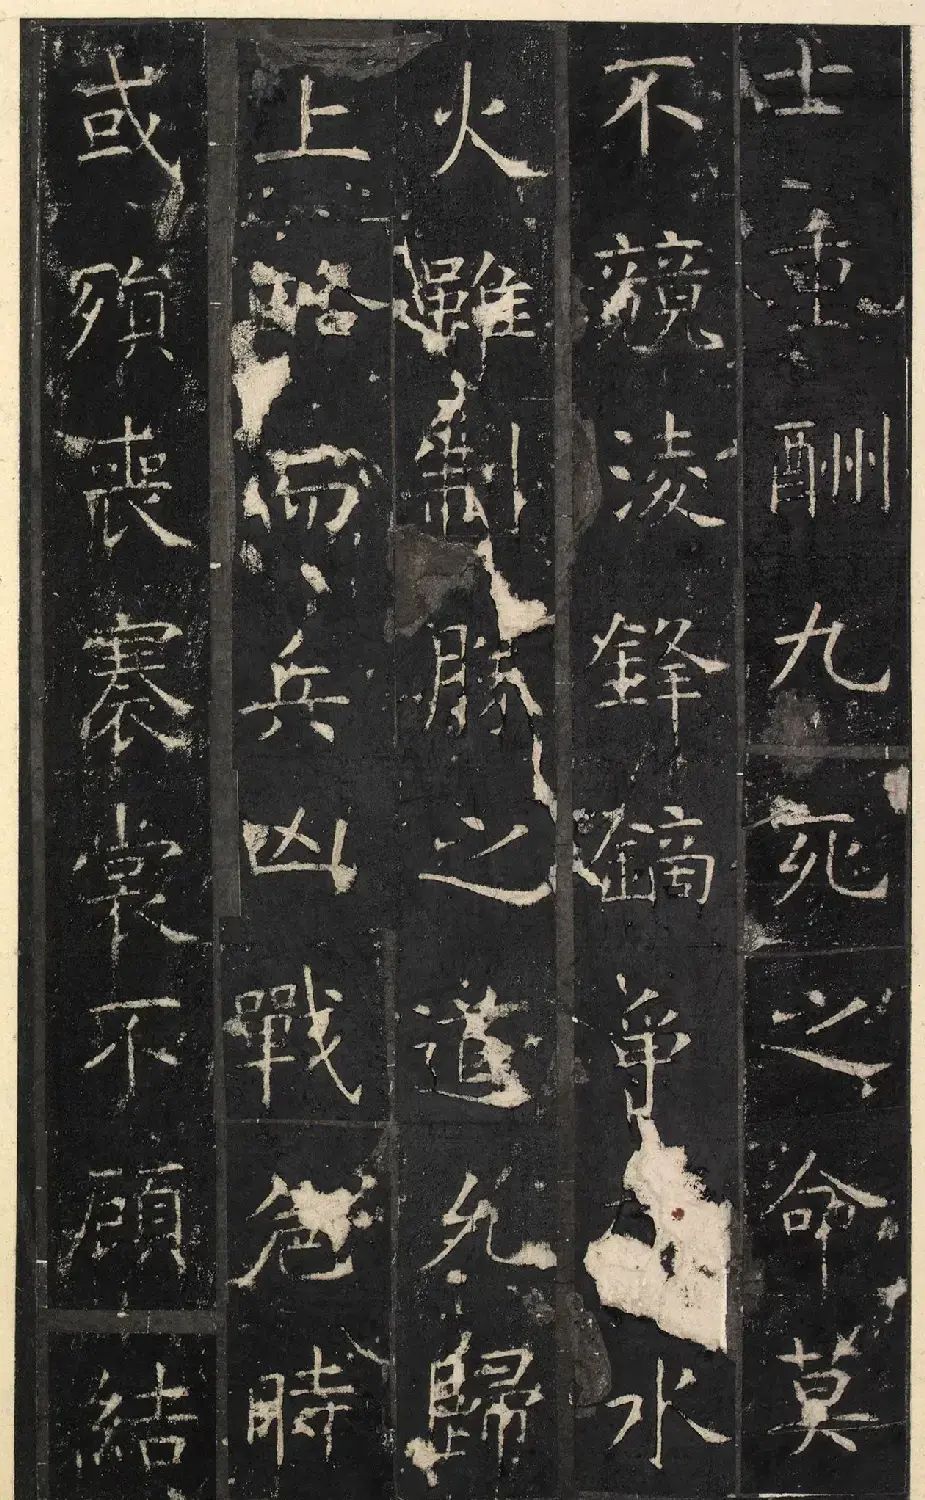 士重酬九死之命莫
不競淩鋒鏑爭水
火雖制勝之道允歸
上略而兵凶戰危時
或殞喪褰裳不顧結